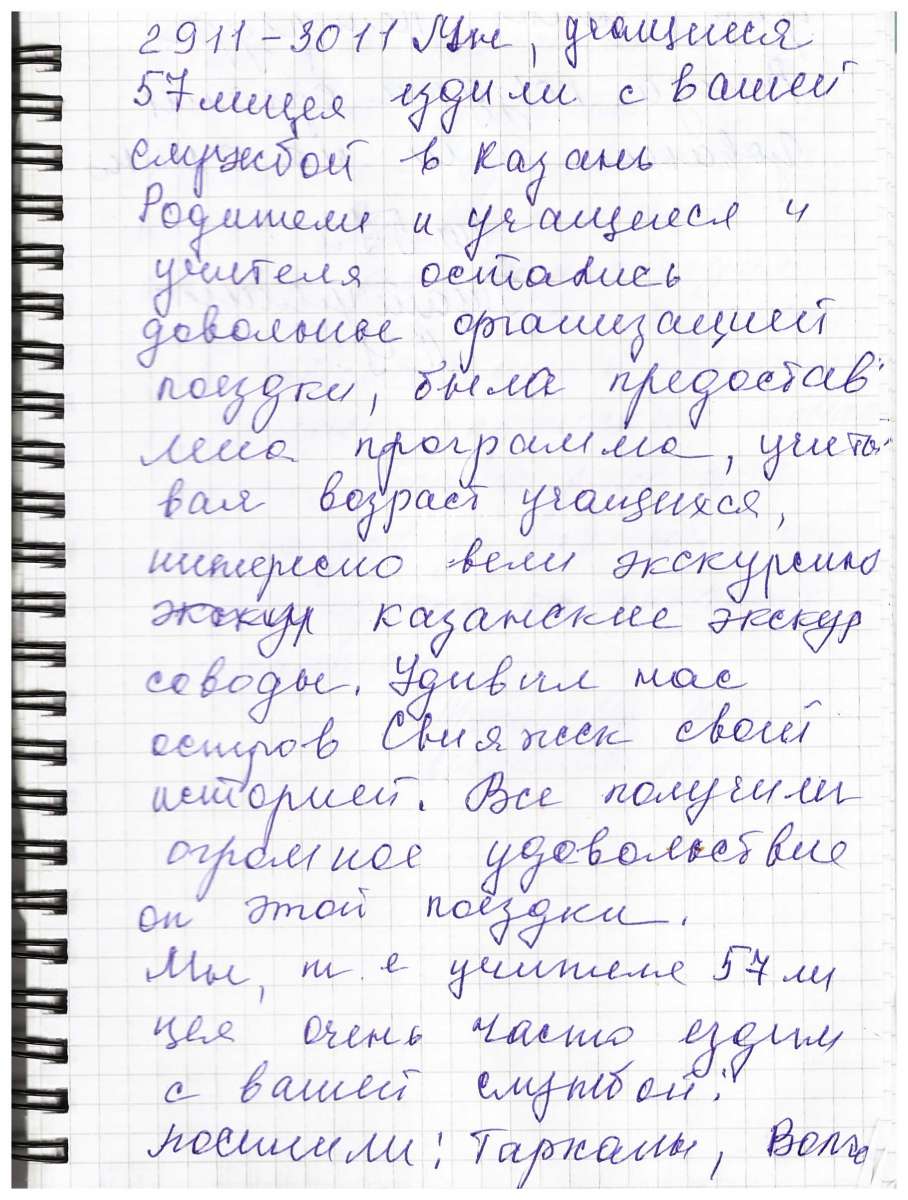 2911-3011 Мы, учащиеся
57 лицея ездили с вашей
службой в Казань
Родители и учащиеся и
учителя остались
довольные организацией
поездки, была предостав
лена программа, учиты
вая возраст учащихся,
интересно вели экскурсию
экскур казанские экскур
соводы. Удивил нас
остров Свияжск своей
историей. Все получили
огромное удовольствие
от этой поездки.
Мы, т е учителя 57 ли
цея очень часто ездим
с вашей службой:
посетили: Тарханы,